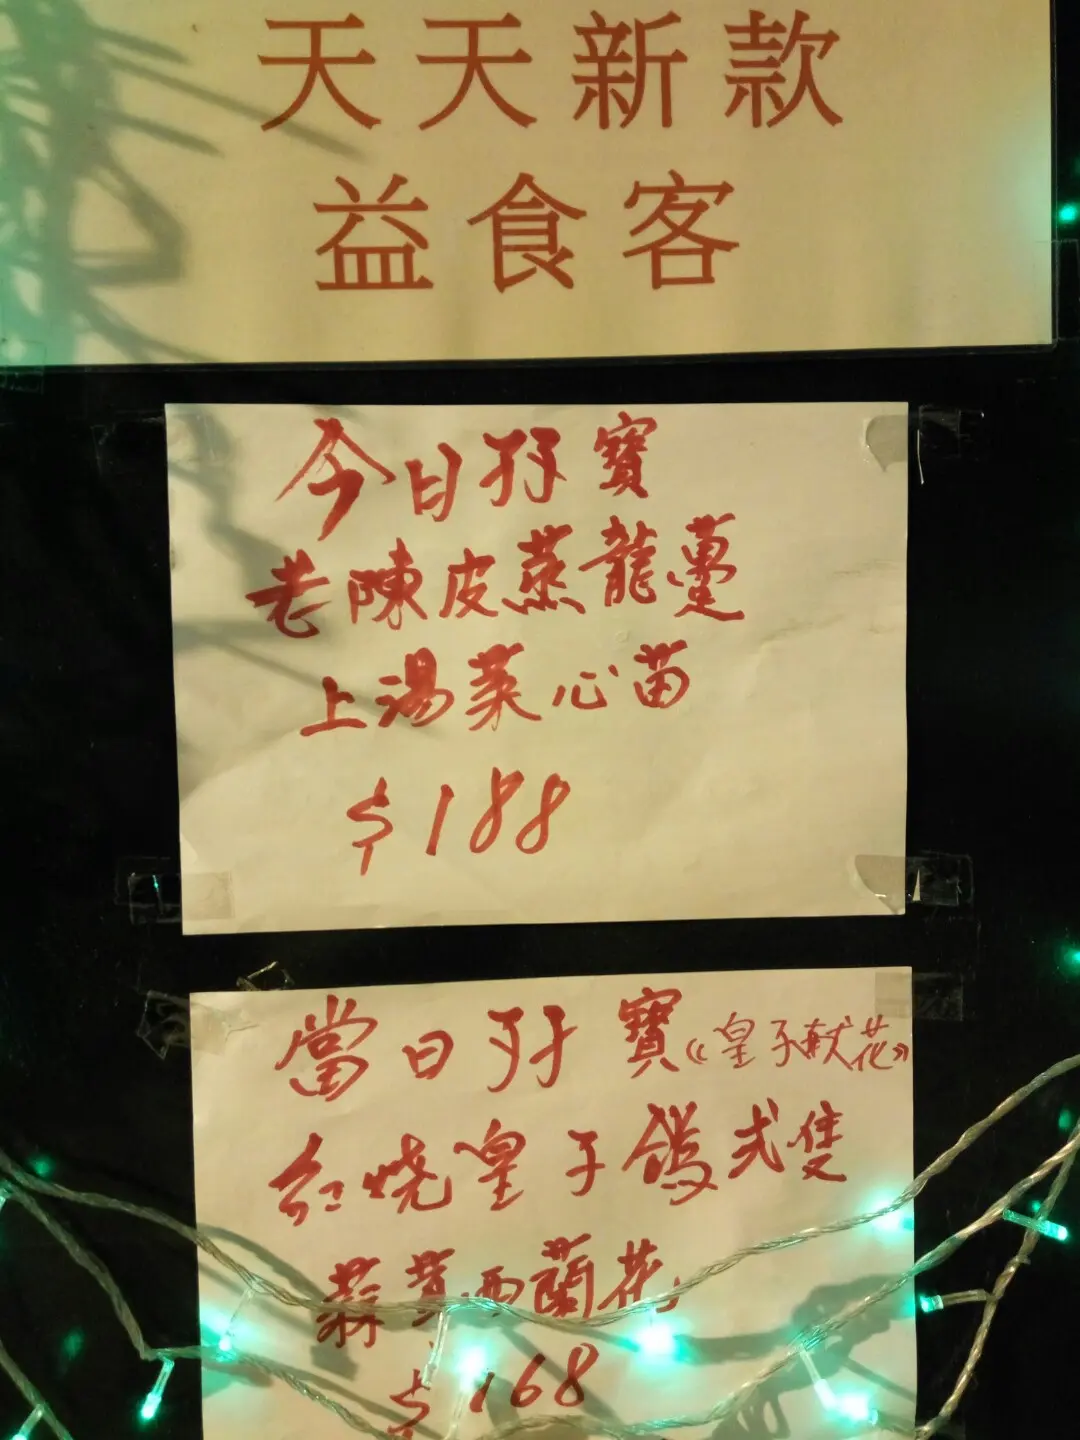 天天新款
益食客
今日孖寶
老陳皮蒸龍躉
上湯菜心苗
$188
當日孖寶《皇子献花》
红烧皇子鴿弍隻
蒜茸西蘭花
$168